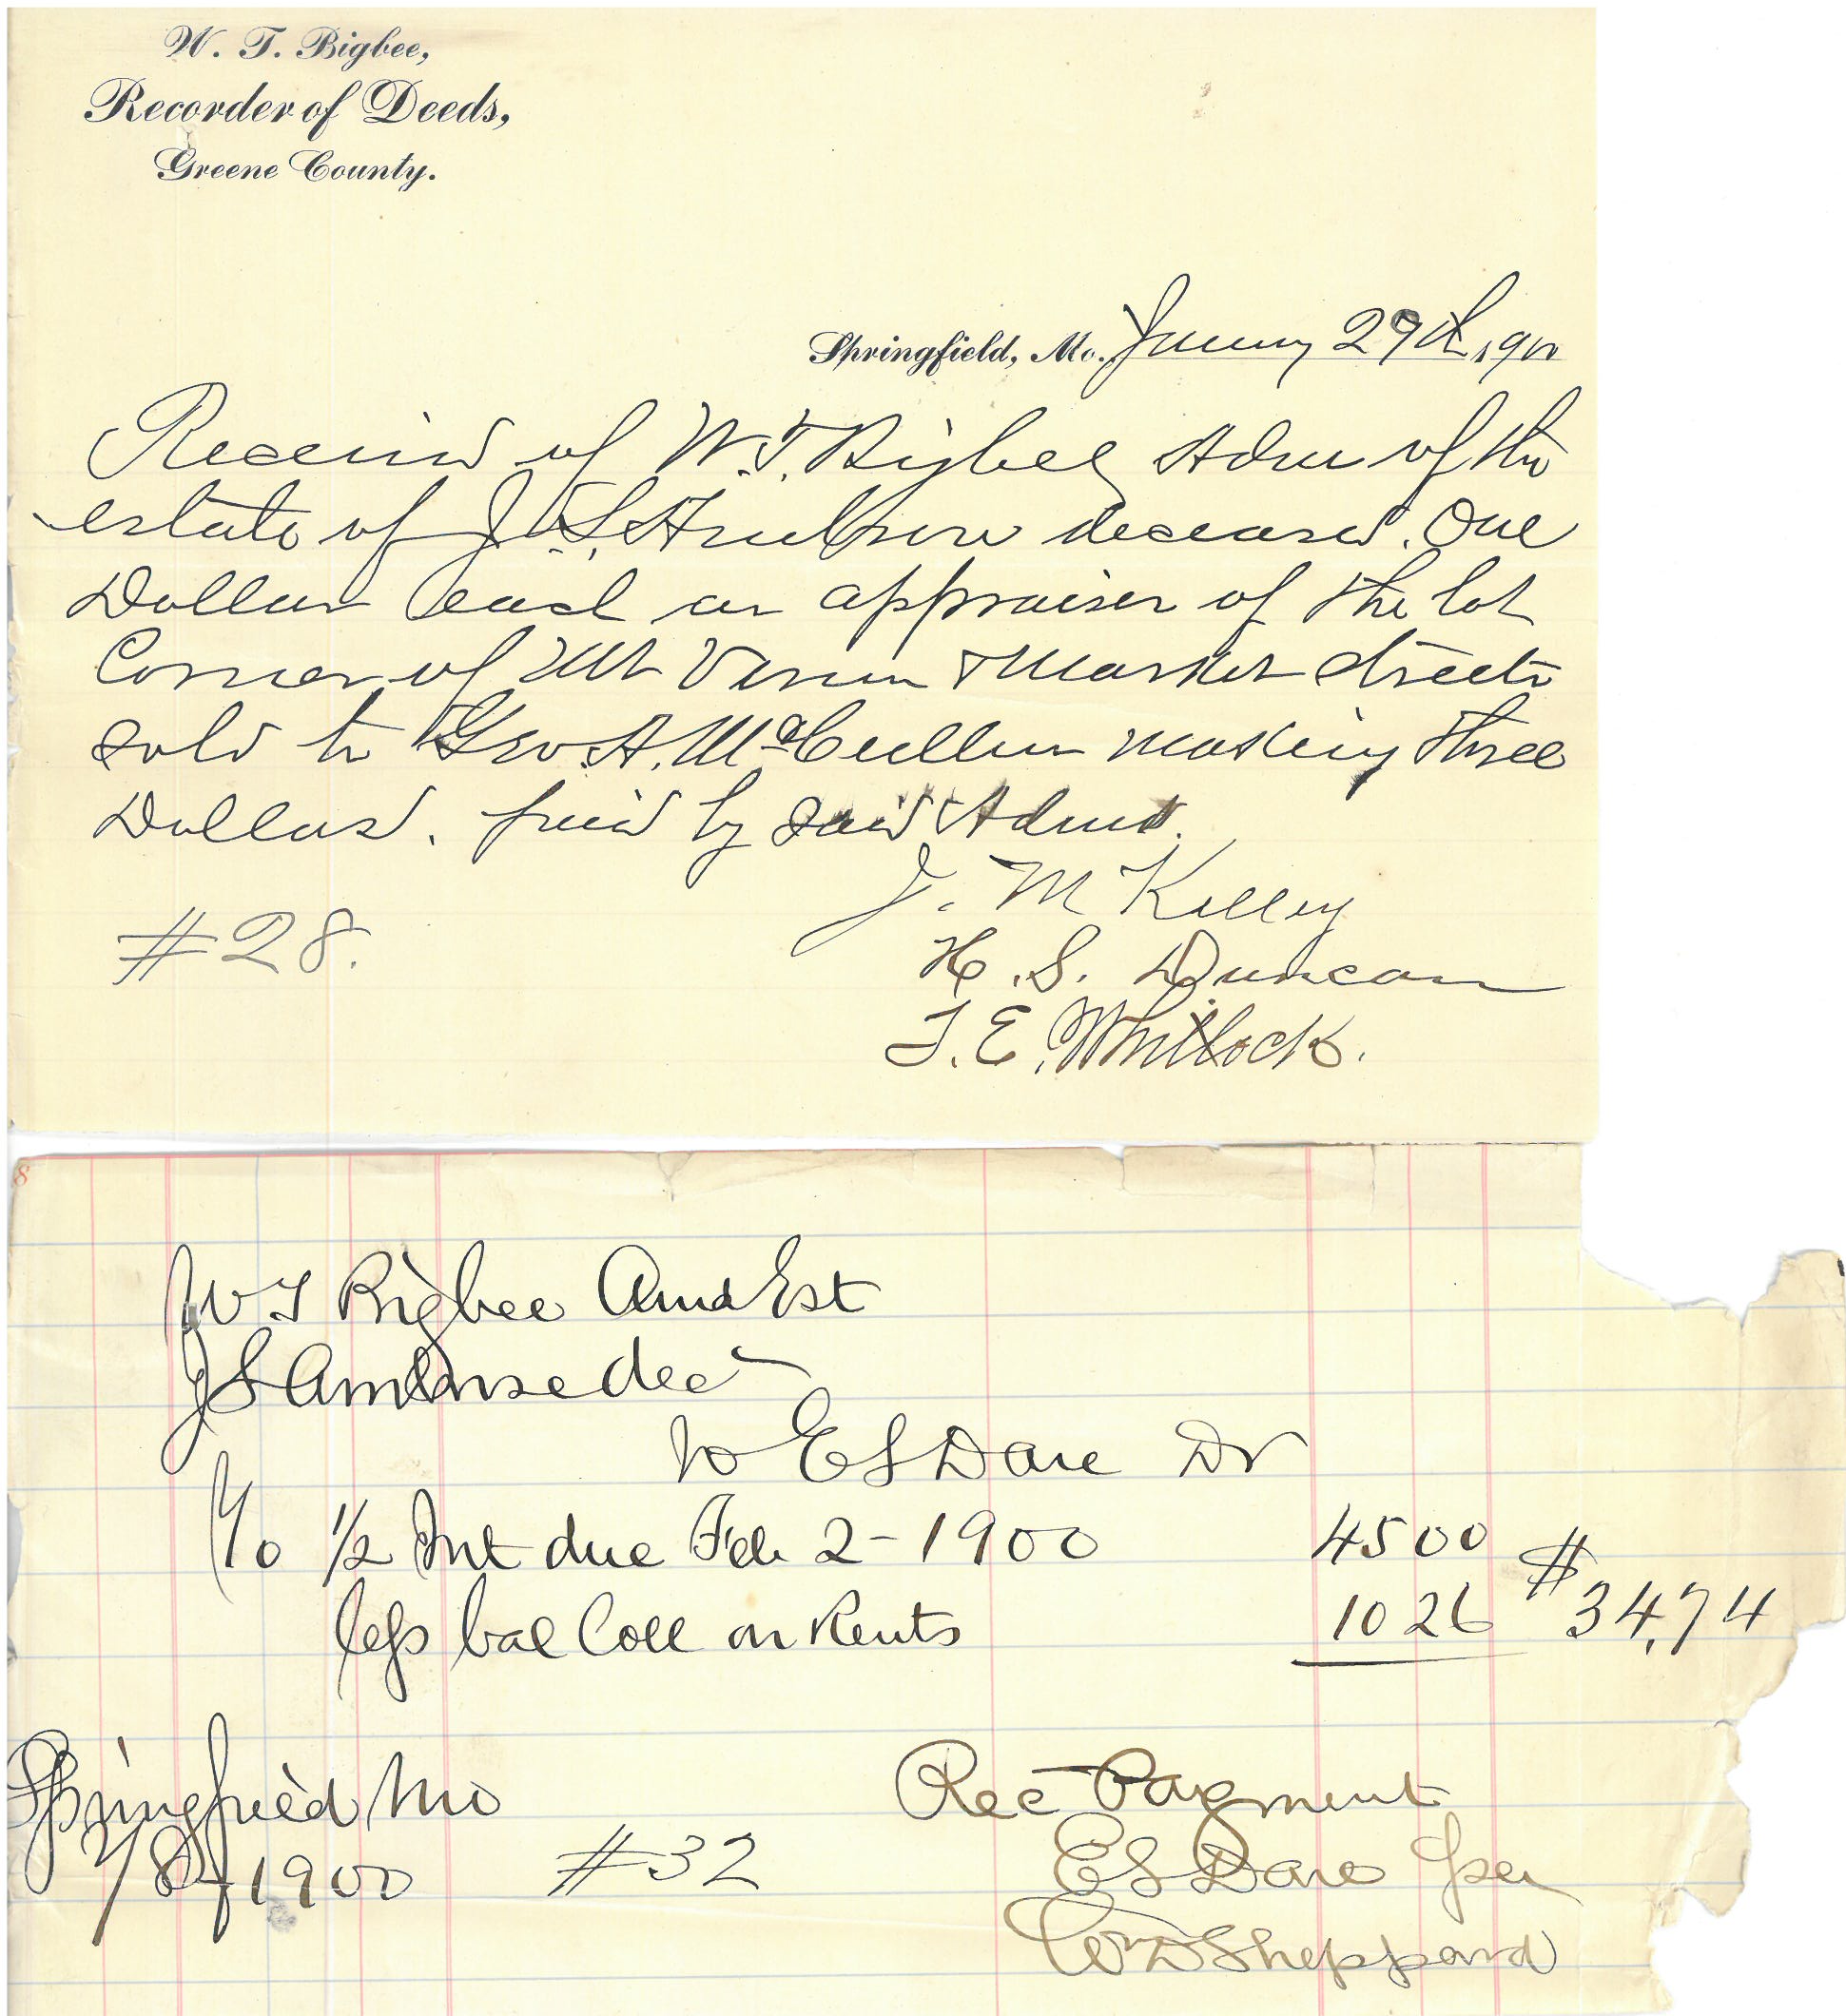 W. T. Bigbee,
Recorder of Deeds,
Greene County.
Springfield, Mo. January 29th, 1900
Received of W.T. Bigbee Admr of the
estate of J.S. Ambrose deceased. One
Dollar each as appraiser of the lot
Corner of Mt Vernon & Market streets
sold to Geo. A. McCullum making three
Dollars. paid by said Admr.
J. M Kelley
#28.
H. S. Duncan
T. E. Whitlock.
8
W T Bigbee Amd Est
J S Ambrose dec
to E S Dare Dr
To 1/2 Int due Feb 2-1900 4500
less bal Coll on Rents 1026 $34,74
Springfield Mo
Rec Payment
2/8/1900 #32
E S Dare per
Wm D Sheppard